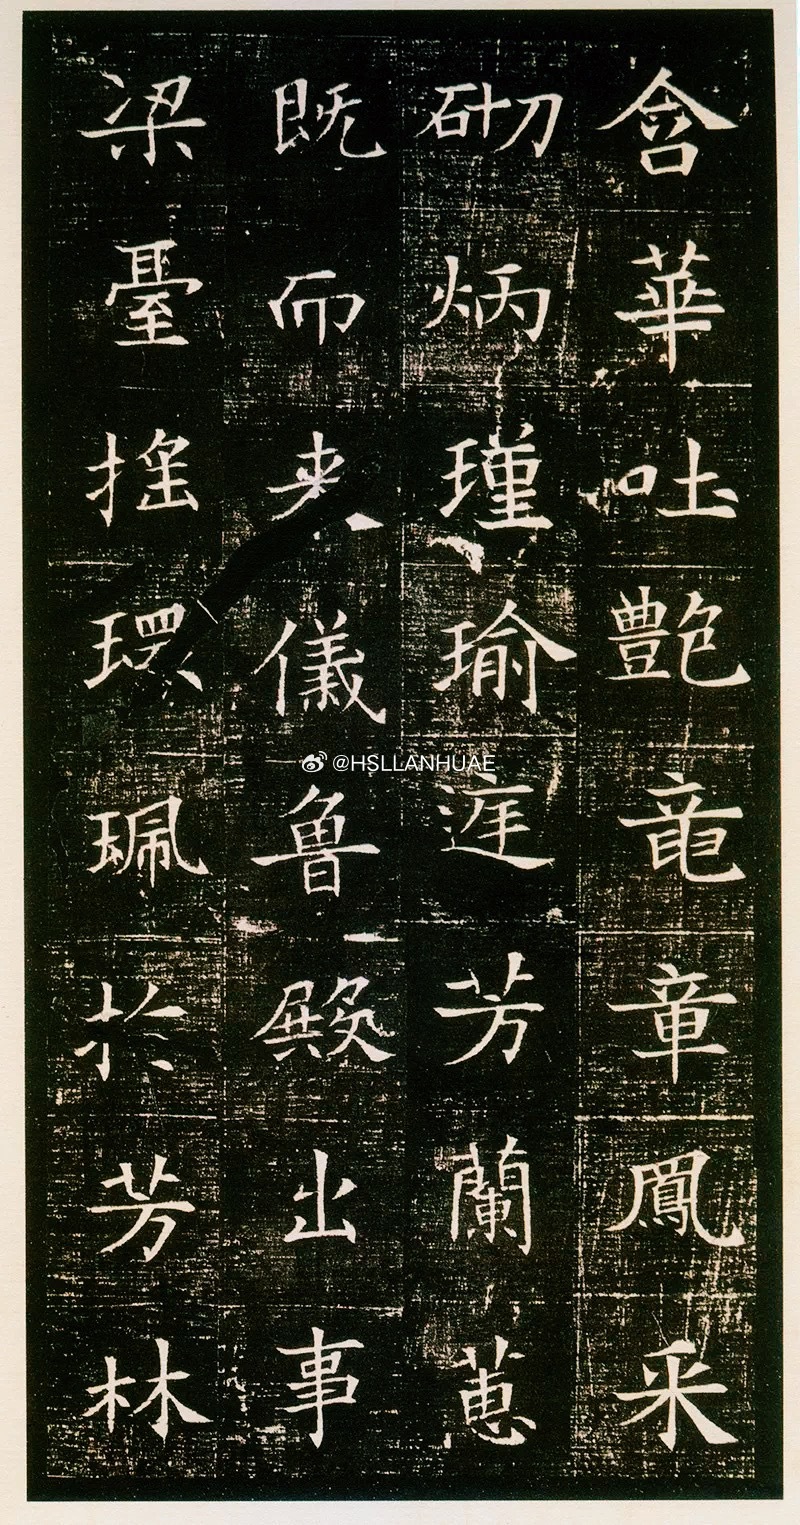 含華吐艶竜章鳳采
砌炳瑾瑜庭芳蘭蕙
既而来儀魯殿出事
梁臺揺環珮於芳林
@HSLLANHUAE